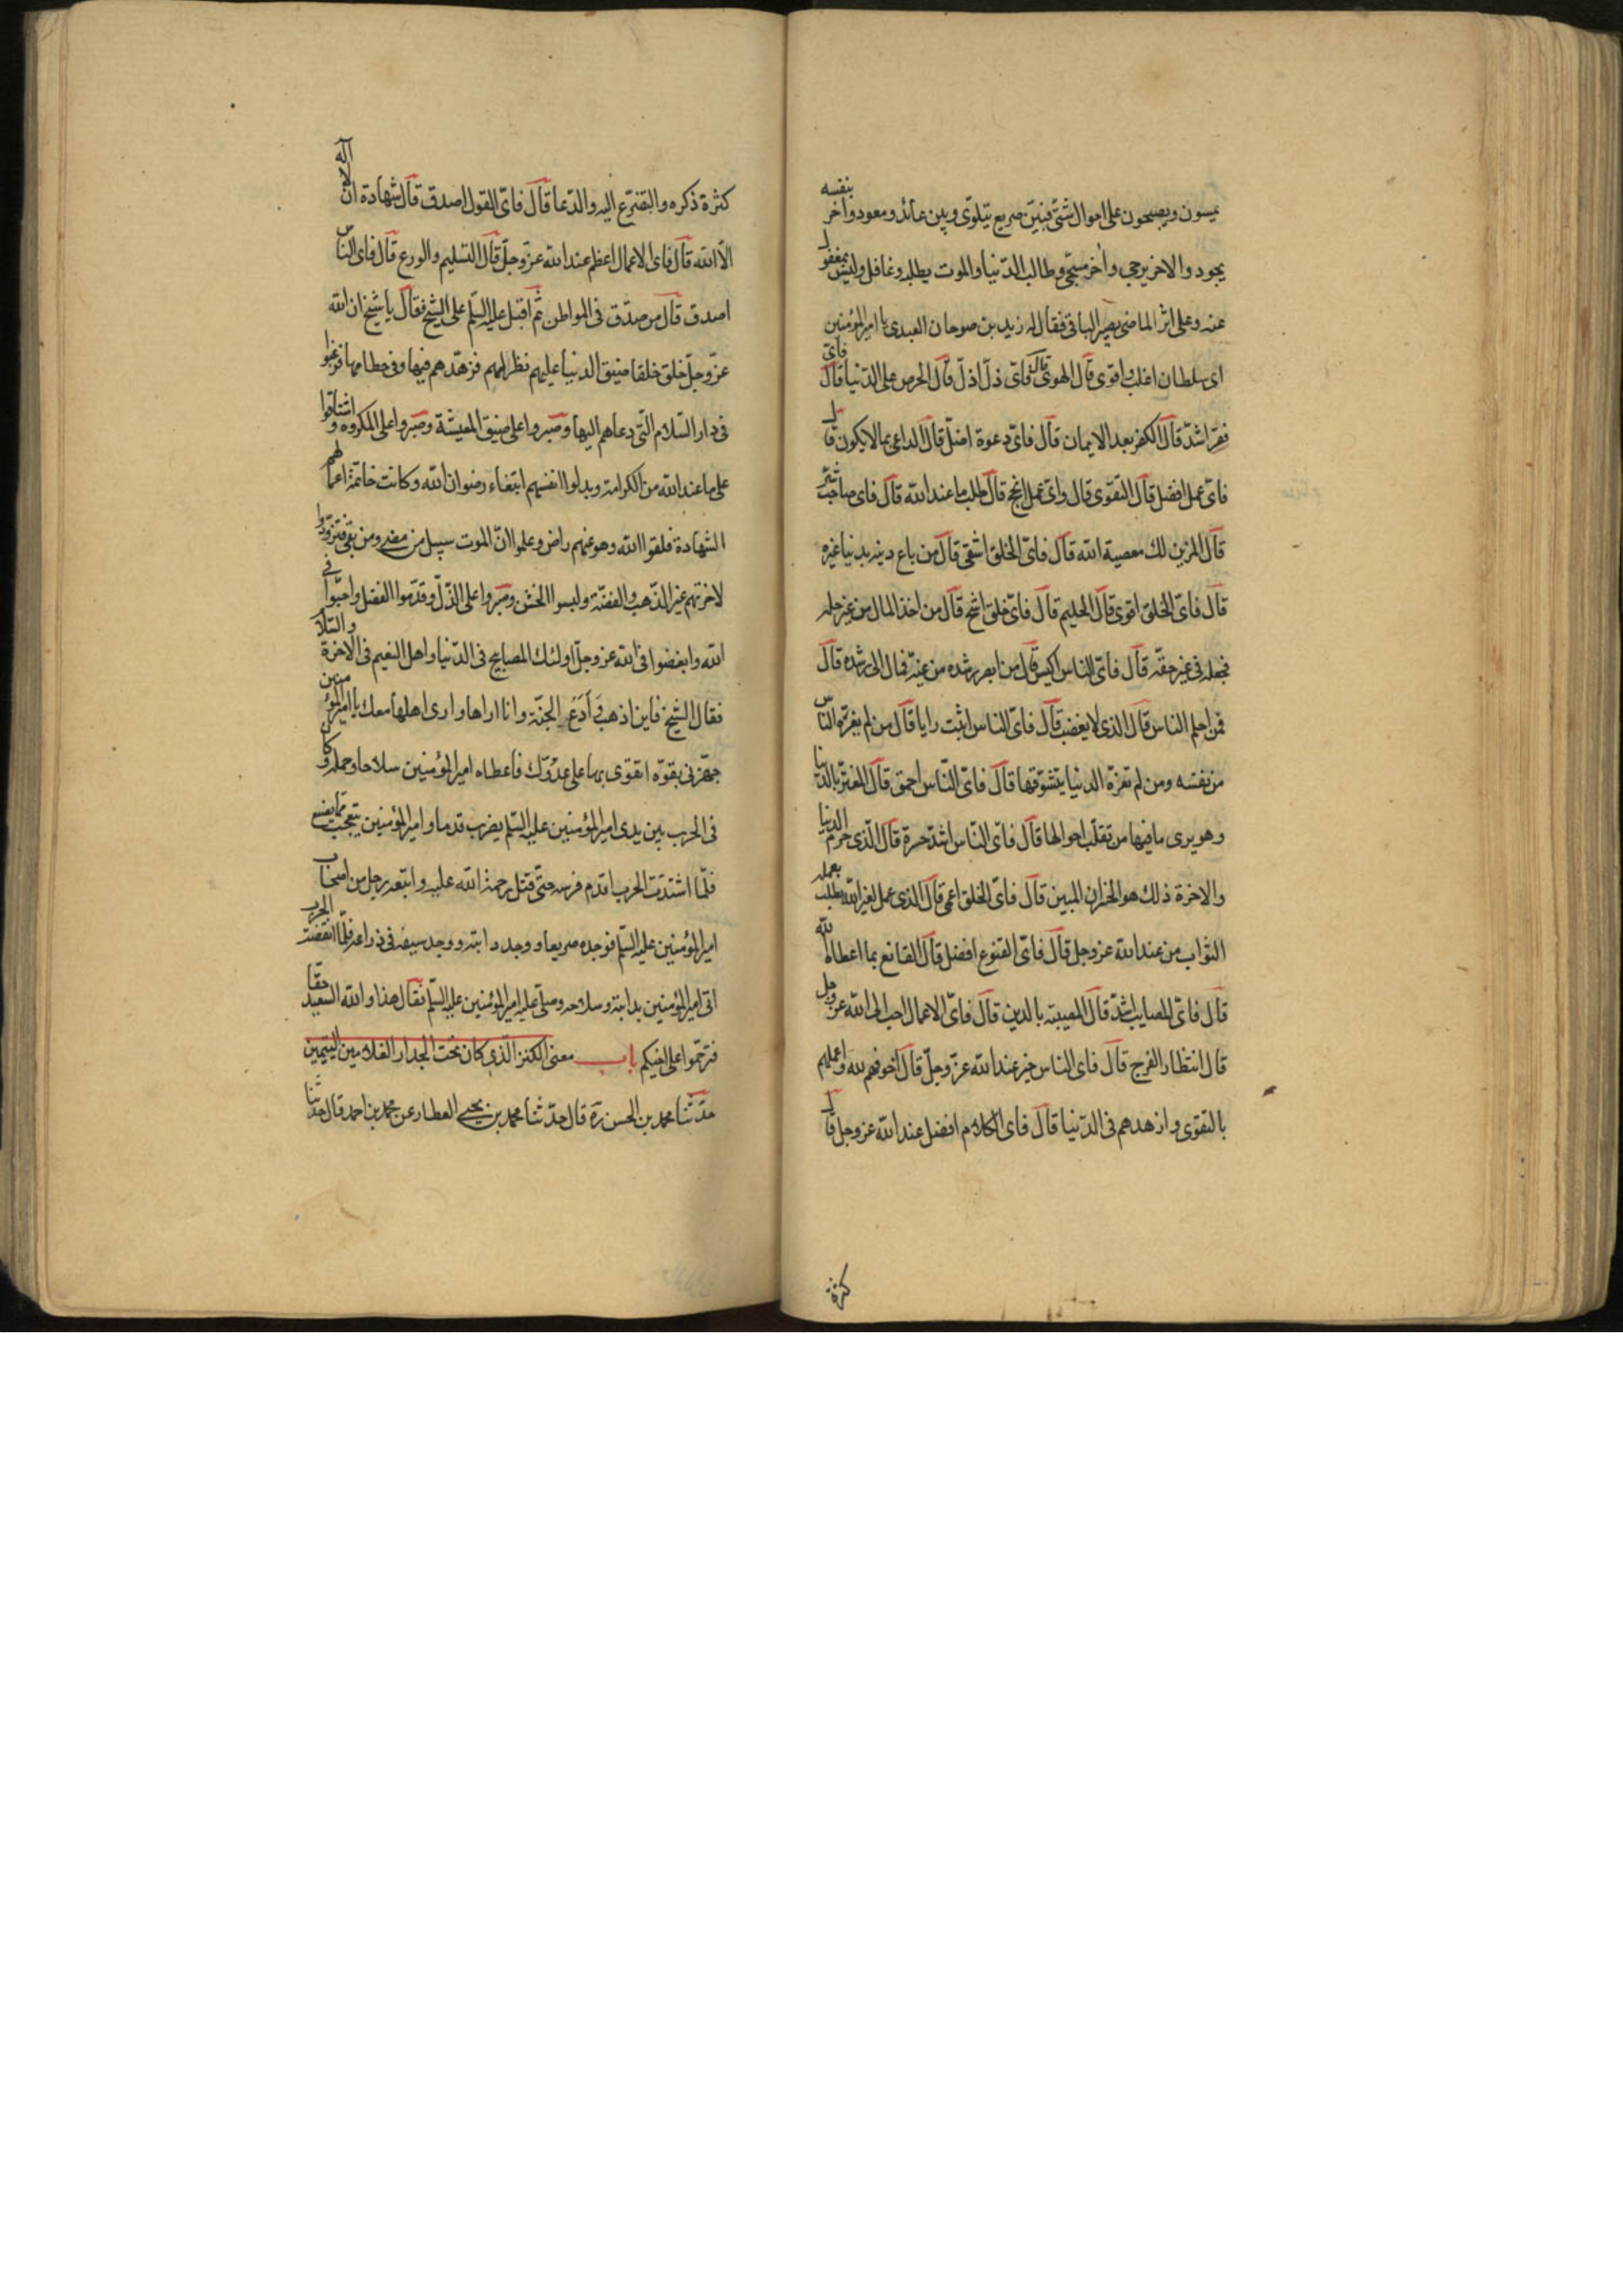 يمسون ويصبحون على احوال شتى فبين صريع يتلوى وبين عائد ومعود واخر بنفسه
يجود والاخر يرجى واخر مسجى وطالب الدنيا والموت يطلبه وغافل وليس بمغفول
عنه وعلى اثر الماضى يصير الباقى فقال له زيد بن صوحان العبدى يا امير المؤمنين
اى سلطان اغلب واقوى قال الهوى قال فاى ذل اذل قال الحرص على الدنيا قال فاى
فقر اشد قال الكفر بعد الايمان قال فاى دعوة اضل قال الداعى بما لا يكون قال
فاى عمل افضل قال التقوى قال واى عمل انجح قال طلب ما عند الله قال فاى صاحب شر
قال المزين لك معصية الله قال فاى الخلق اشقى قال من باع دينه بدنيا غيره
قال فاى الخلق اقوى قال الحليم قال فاى خلق اشح قال من اخذ المال من غير حله
فجعله فى غير حقه قال فاى الناس اكيس قال من ابصر رشده من غيه فمال الى رشده قال
فمن احلم الناس قال الذى لا يغضب قال فاى الناس اثبت رايا قال من لم يغره الناس
من نفسه ومن لم تغره الدنيا بتشوقها قال فاى الناس احمق قال المغتر بالدنيا
وهو يرى ما فيها من تقلب احوالها قال فاى الناس اشد حسرة قال الذى حرم الدنيا
والاخرة ذلك هو الخسران المبين قال فاى الخلق اعمى قال الذى عمل لغير الله يطلب بعمله
الثواب من عند الله عز وجل قال فاى القنوع افضل قال القانع بما اعطاه الله
قال فاى المصايب اشد قال المصيبة بالدين قال فاى الاعمال احب الى الله عز وجل
قال انتظار الفرج قال فاى الناس خير عند الله عز وجل قال اخوفهم لله واعملهم
بالتقوى وازهدهم فى الدنيا قال فاى الكلام افضل عند الله عز وجل قال
كثرة
كثرة ذكره والتضرع اليه والدعا قال فاى القول اصدق قال شهادة ان لا اله
الا الله قال فاى الاعمال اعظم عند الله عز وجل قال التسليم والورع قال فاى الناس
اصدق قال من صدق فى المواطن ثم اقبل عليه السلم على الشيخ فقال يا شيخ ان الله
عز وجل خلق خلقا ضيق الدنيا عليهم نظرا لهم فزهدهم فيها وفى حطامها فرغبوا
فى دار السلام التى دعاهم اليها وصبروا على ضيق المعيشة وصبروا على المكروه واشتاقوا
على ما عند الله من الكرامة وبدلوا انفسهم ابتغاء رضوان الله وكانت خاتمة اعمالهم
الشهادة فلقوا الله وهو عنهم راض وعلموا ان الموت سبيل من مضى ومن بقى فتزودوا
لاخرتهم غير الذهب والفضة ولبسوا الخشن وصبروا على الذل وقدموا الفضل واحبوا فى
الله وابغضوا فى الله عز وجل اولئك المصابيح فى الدنيا واهل النعيم فى الاخرة والسلام
فقال الشيخ فاين اذهب وأدع الجنة وانا اراها وارى اهلها معك يا امير المؤمنين
جهزنى بقوة اتقوى بها على عدوك فاعطاه امير المؤمنين سلاحا وحمله وكان
فى الحرب بين يدى امير المؤمنين عليه السلم يضرب قدما وامير المؤمنين يتعجب مما يصنع
فلما اشتدت الحرب اقدم فرسه حتى قتل رحمة الله عليه واتبعه رجل من اصحاب
امير المؤمنين عليه السلم فوجده صريعا ووجد دابته ووجد سيفه فى ذراعه فلما انقضت الحرب
اتى امير المؤمنين بدابته وسلاحه وصلى عليه امير المؤمنين عليه السلم فقال هذا والله السعيد حقا
فترحموا على اخيكم باب معنى الكنز الذى كان تحت الجدار الغلامين اليتيمين
حدثنا محمد بن الحسن ره قال حدثنا محمد بن يحيى العطار عن محمد بن احمد قال حدثنا